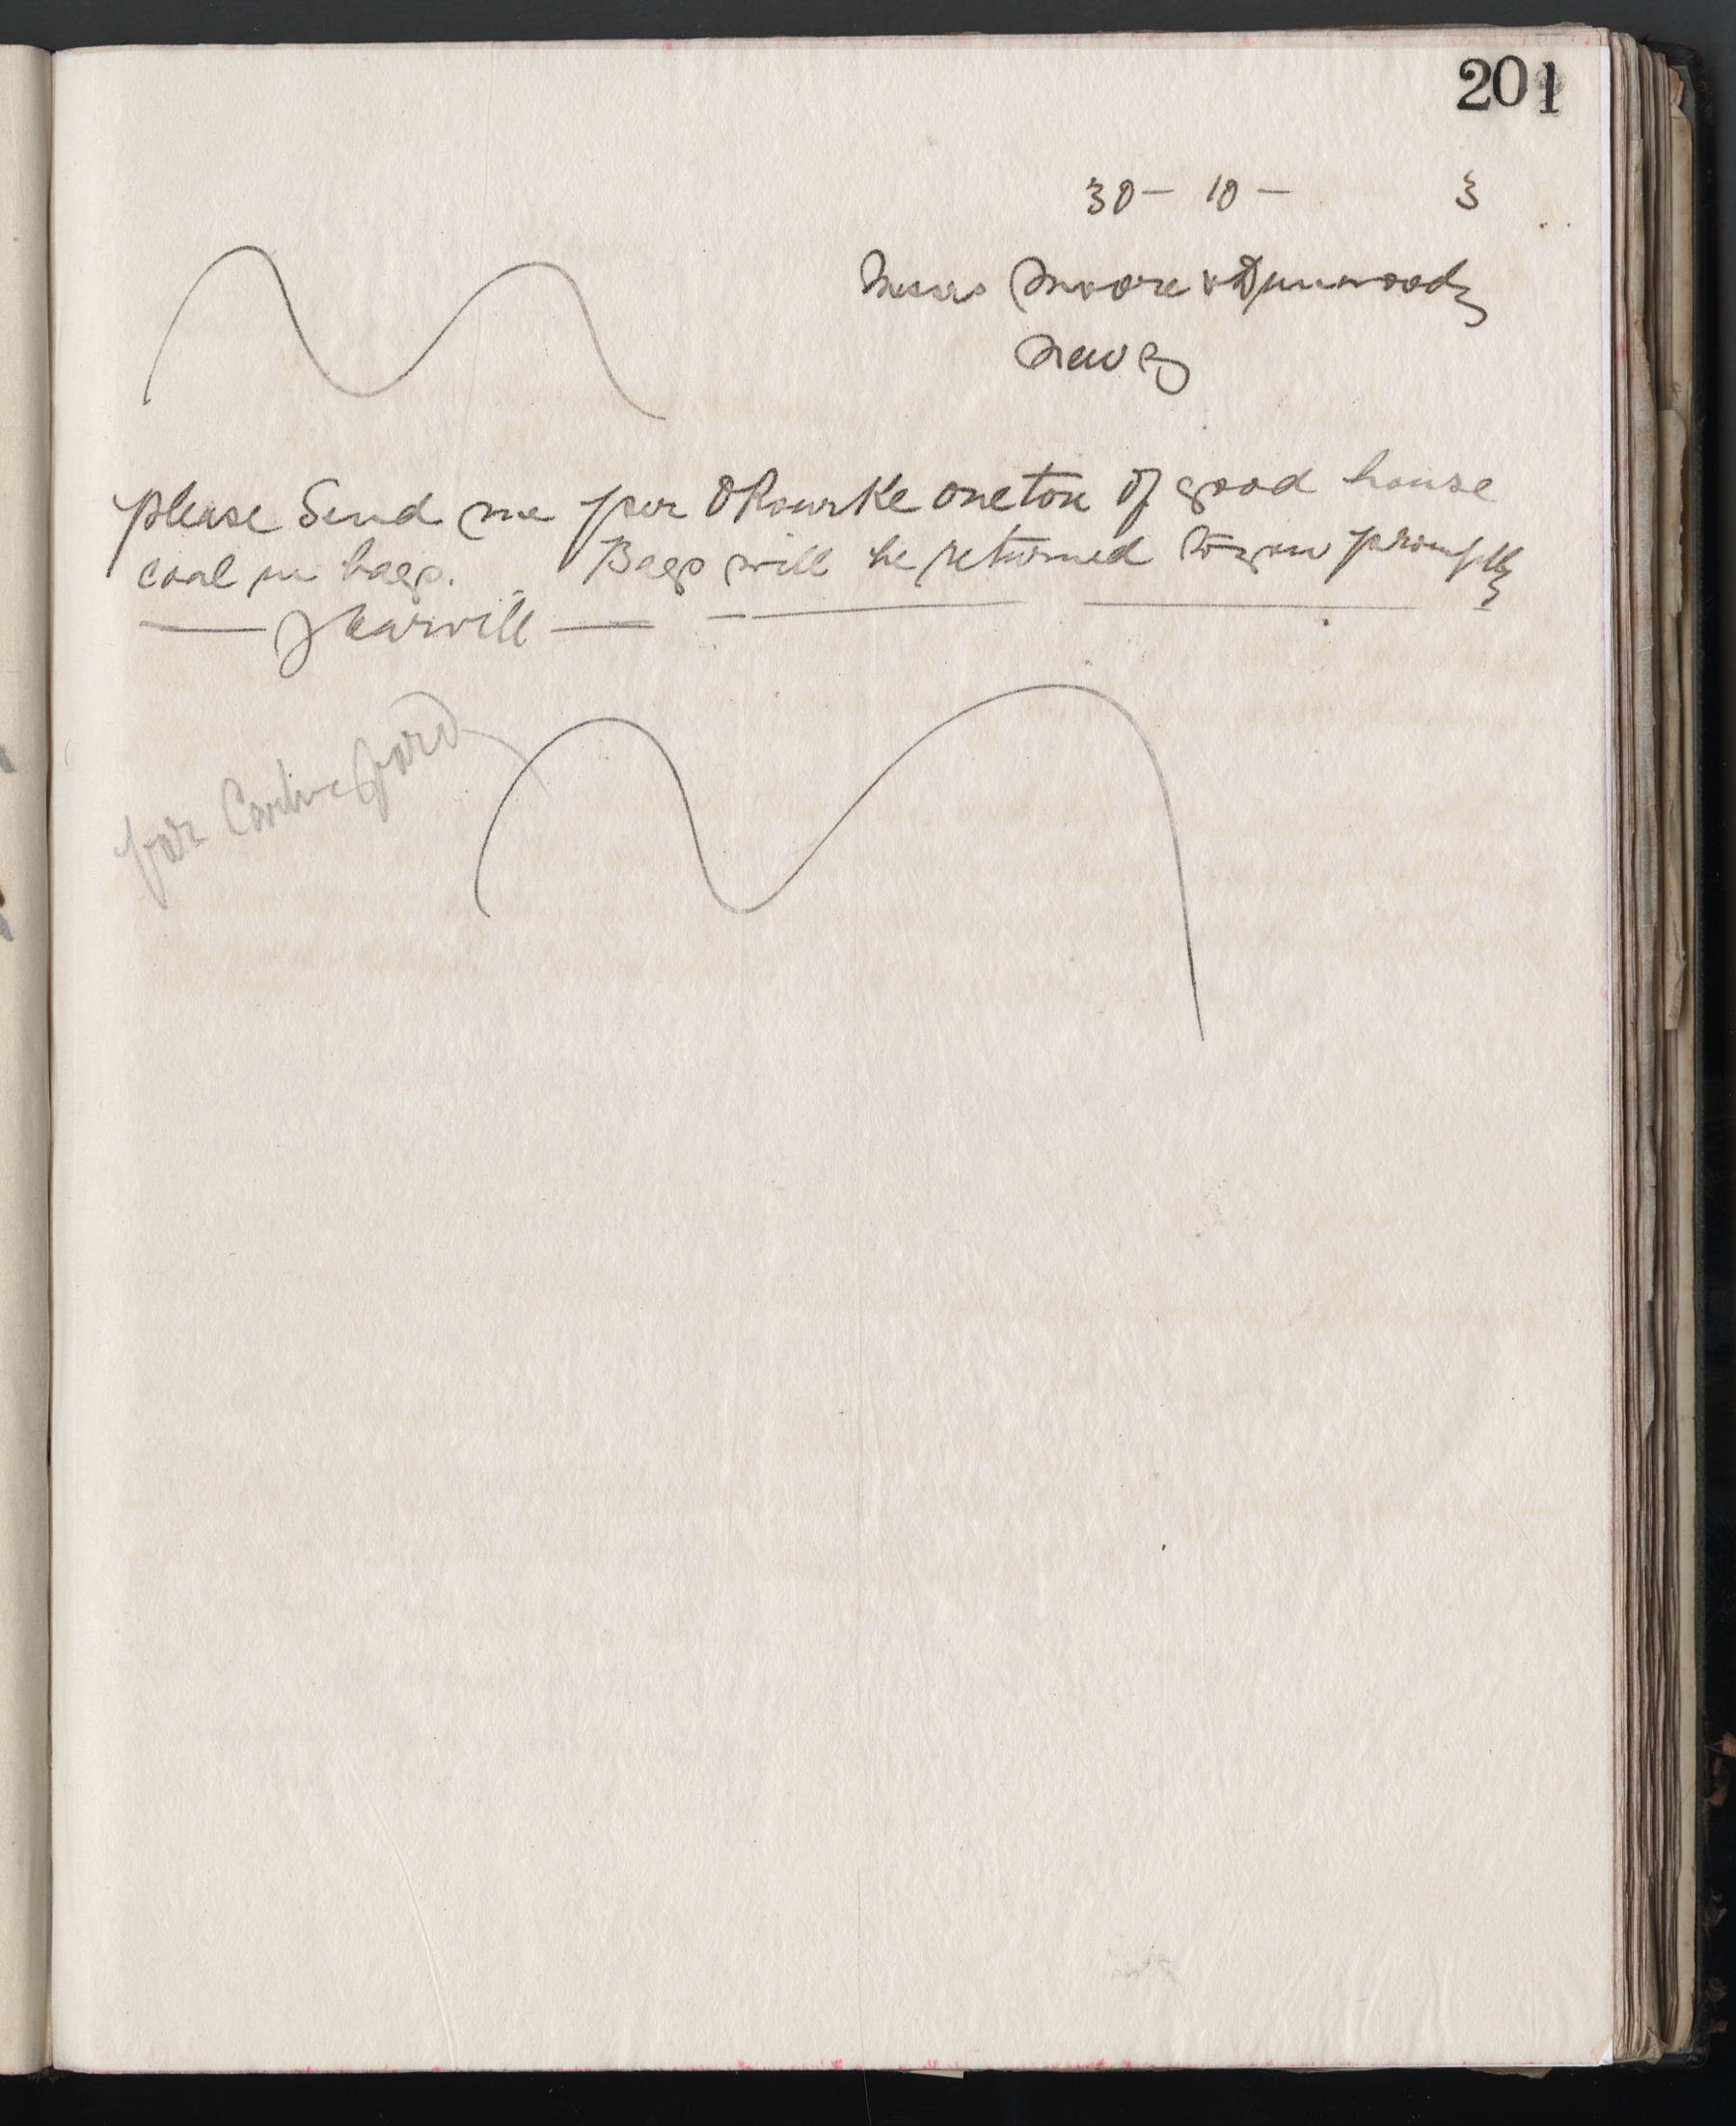 201
30 - 10 - 3
Messrs Moore & Dunwoody
Newry
please Send me per O Rourke one ton of good house
coal in bags. Bags will be returned to you promptly
J Carvill
for Carlingford